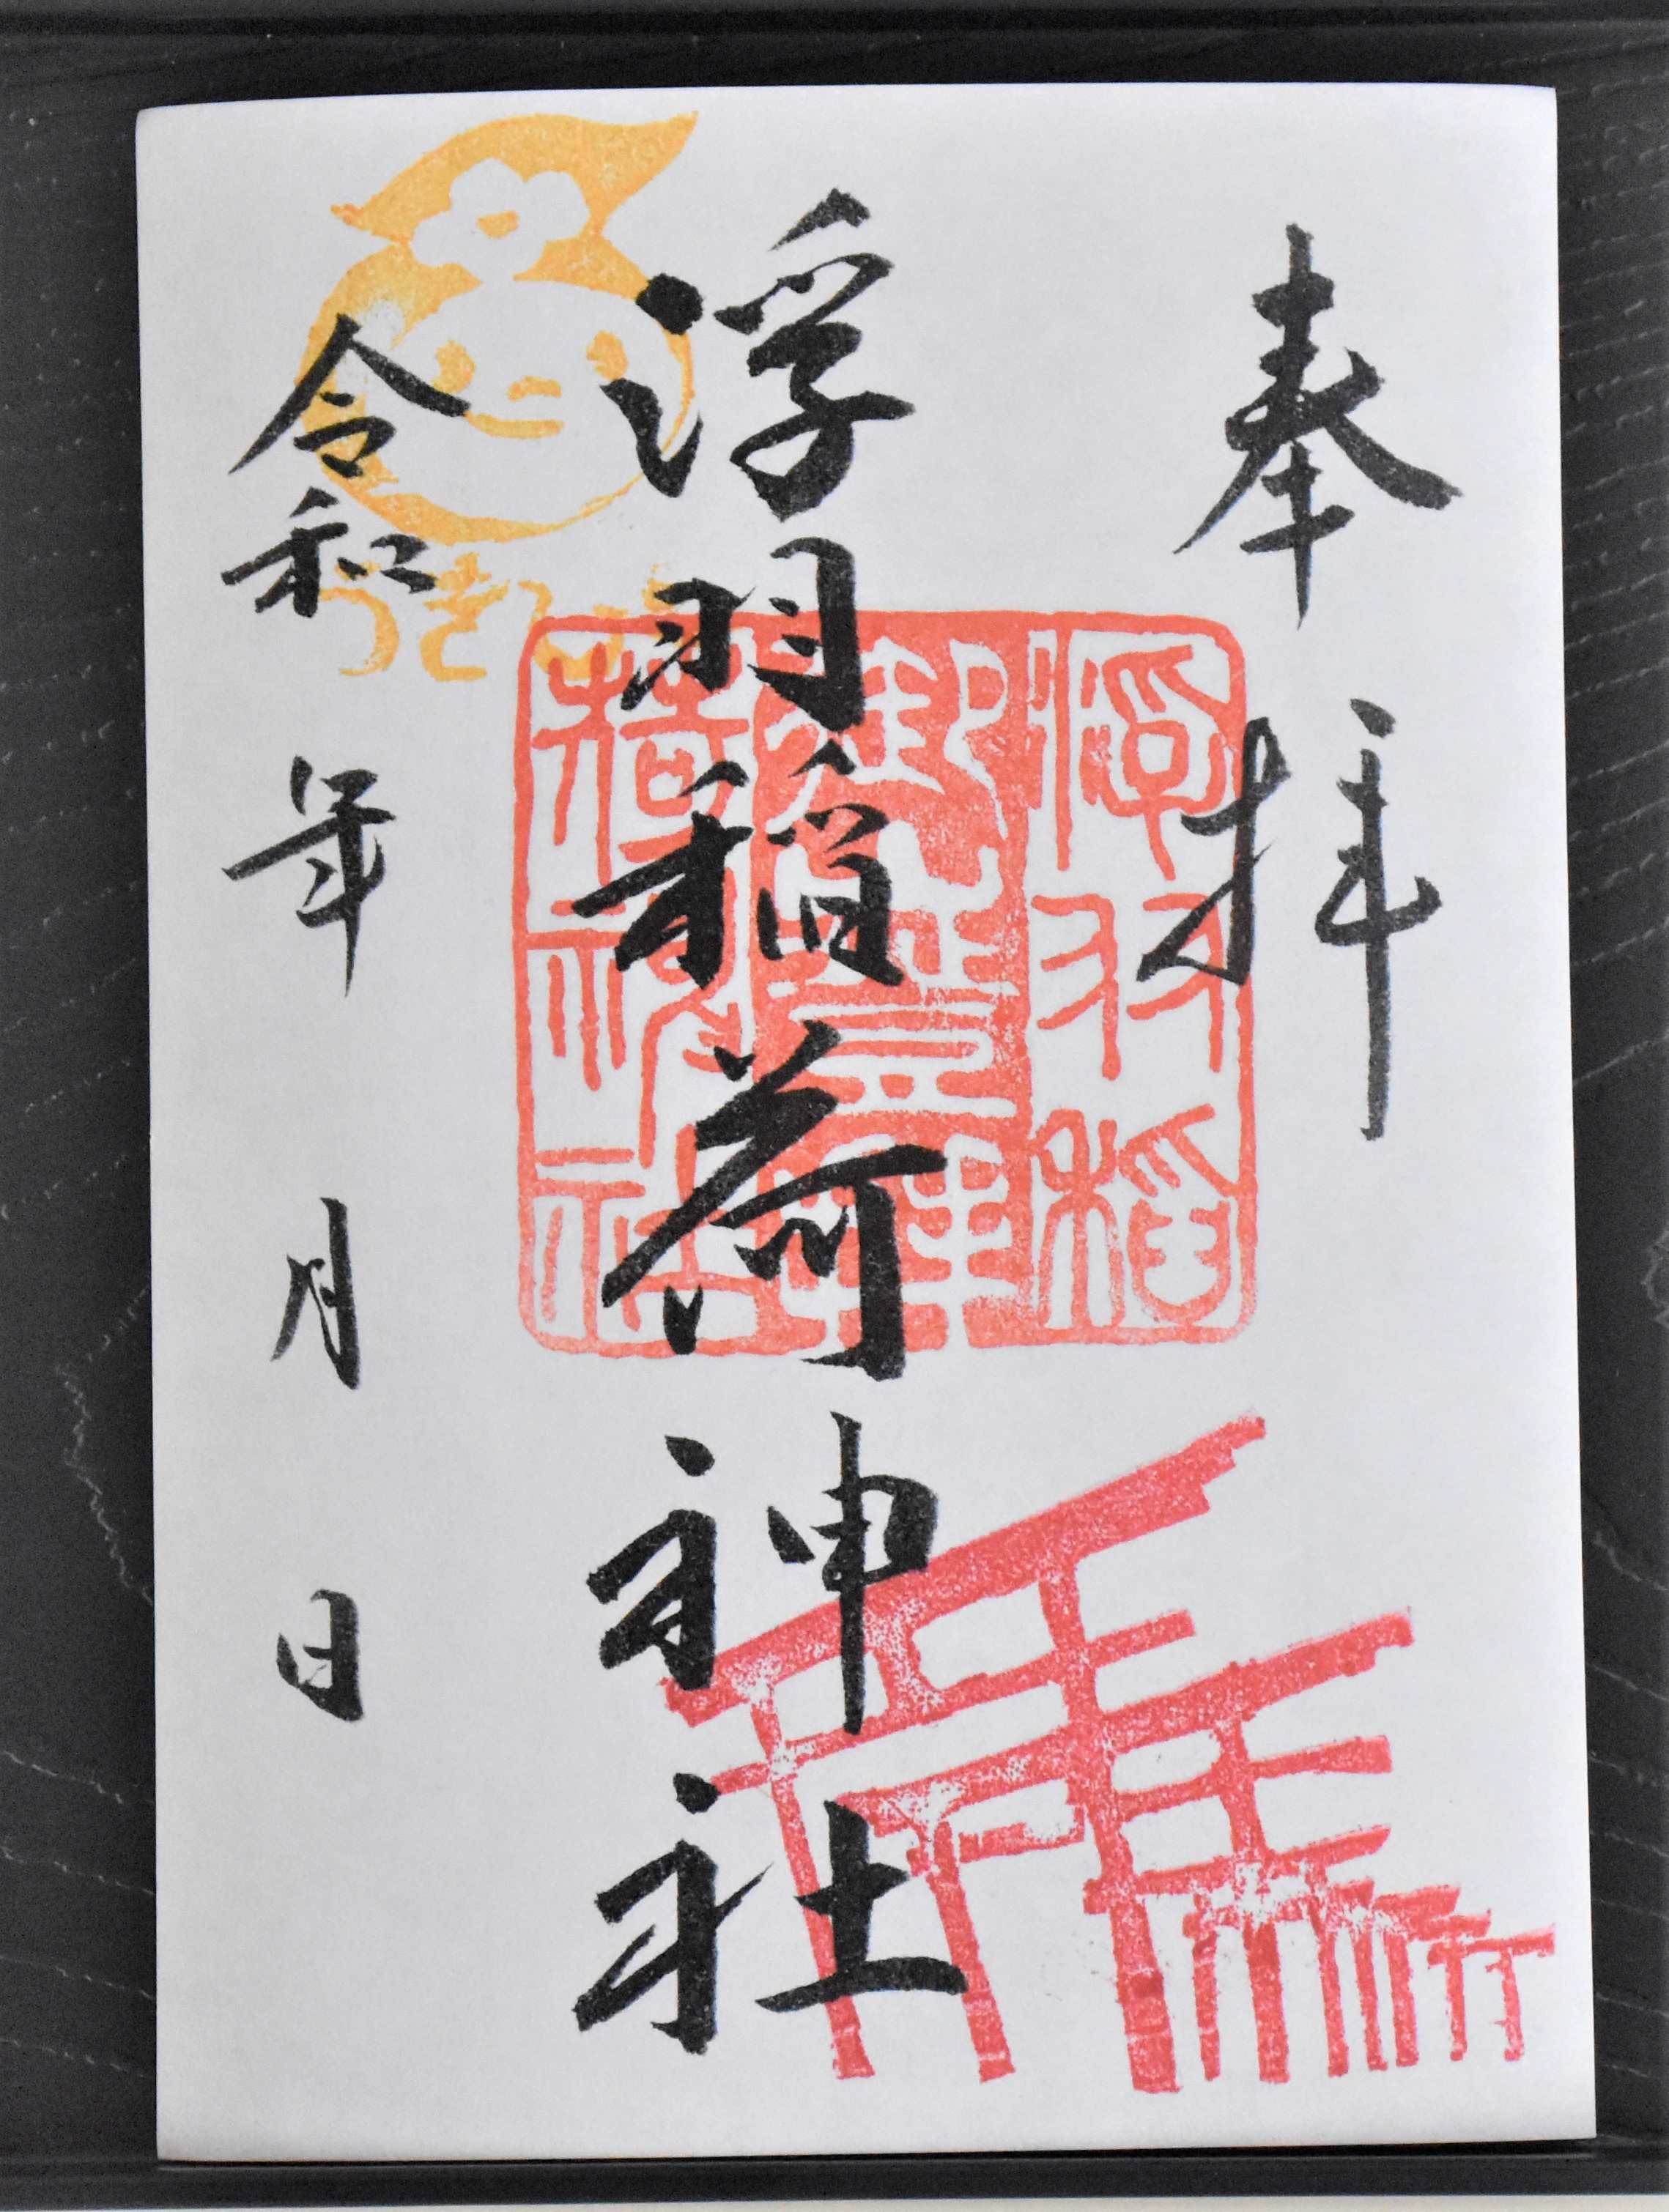 奉拝
浮羽稲荷神社
浮羽稲
荷神社
令和 年 月 日